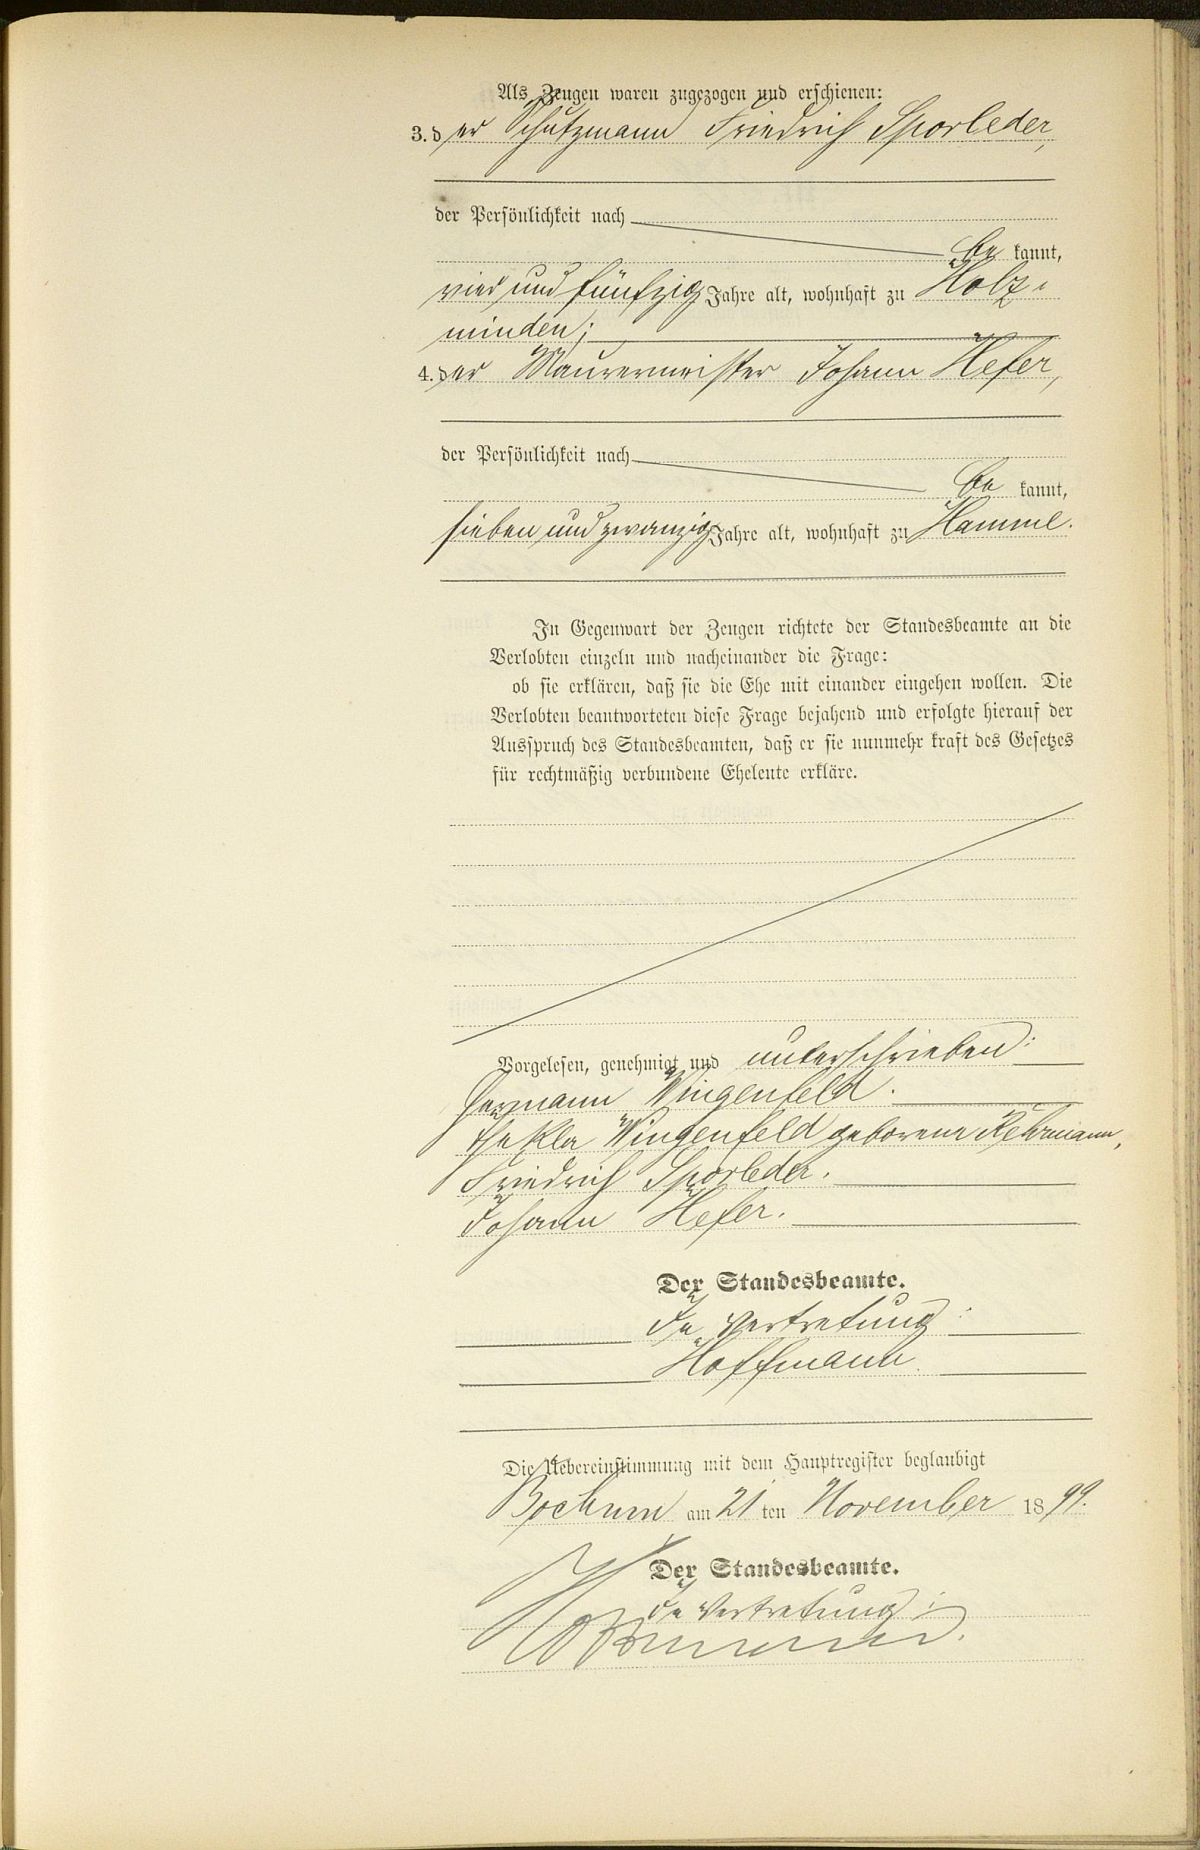 Als Zeugen waren zugezogen und erschienen:
3. der Schutzmann Friedrich Sporleder,
der Persönlichkeit nach
be kannt,
vier und fünfzig Jahre alt, wohnhaft zu Holz-
minden;
4. der Maurermeister Johann Hefer,
der Persönlichkeit nach
be kannt,
sieben und zwanzig Jahre alt, wohnhaft zu Hamme.
In Gegenwart der Zeugen richtete der Standesbeamte an die
Verlobten einzeln und nacheinander die Frage:
ob sie erklären, daß sie die Ehe mit einander eingehen wollen. Die
Verlobten beantworteten diese Frage bejahend und erfolgte hierauf der
Ausspruch des Standesbeamten, daß er sie nunmehr kraft des Gesetzes
für rechtmäßig verbundene Eheleute erkläre.
Vorgelesen, genehmigt und unterschrieben:
Hermann Wingenfeld.
Thekla Wingenfeld geborene Rehrmann,
Friedrich Sporleder.
Johann Hefer.
Der Standesbeamte.
In Vertretung:
Hoffmann.
Die Uebereinstimmung mit dem Hauptregister beglaubigt
Bochum am 21 ten November 1899.
Der Standesbeamte.
In Vertretung:
Hoffmann.